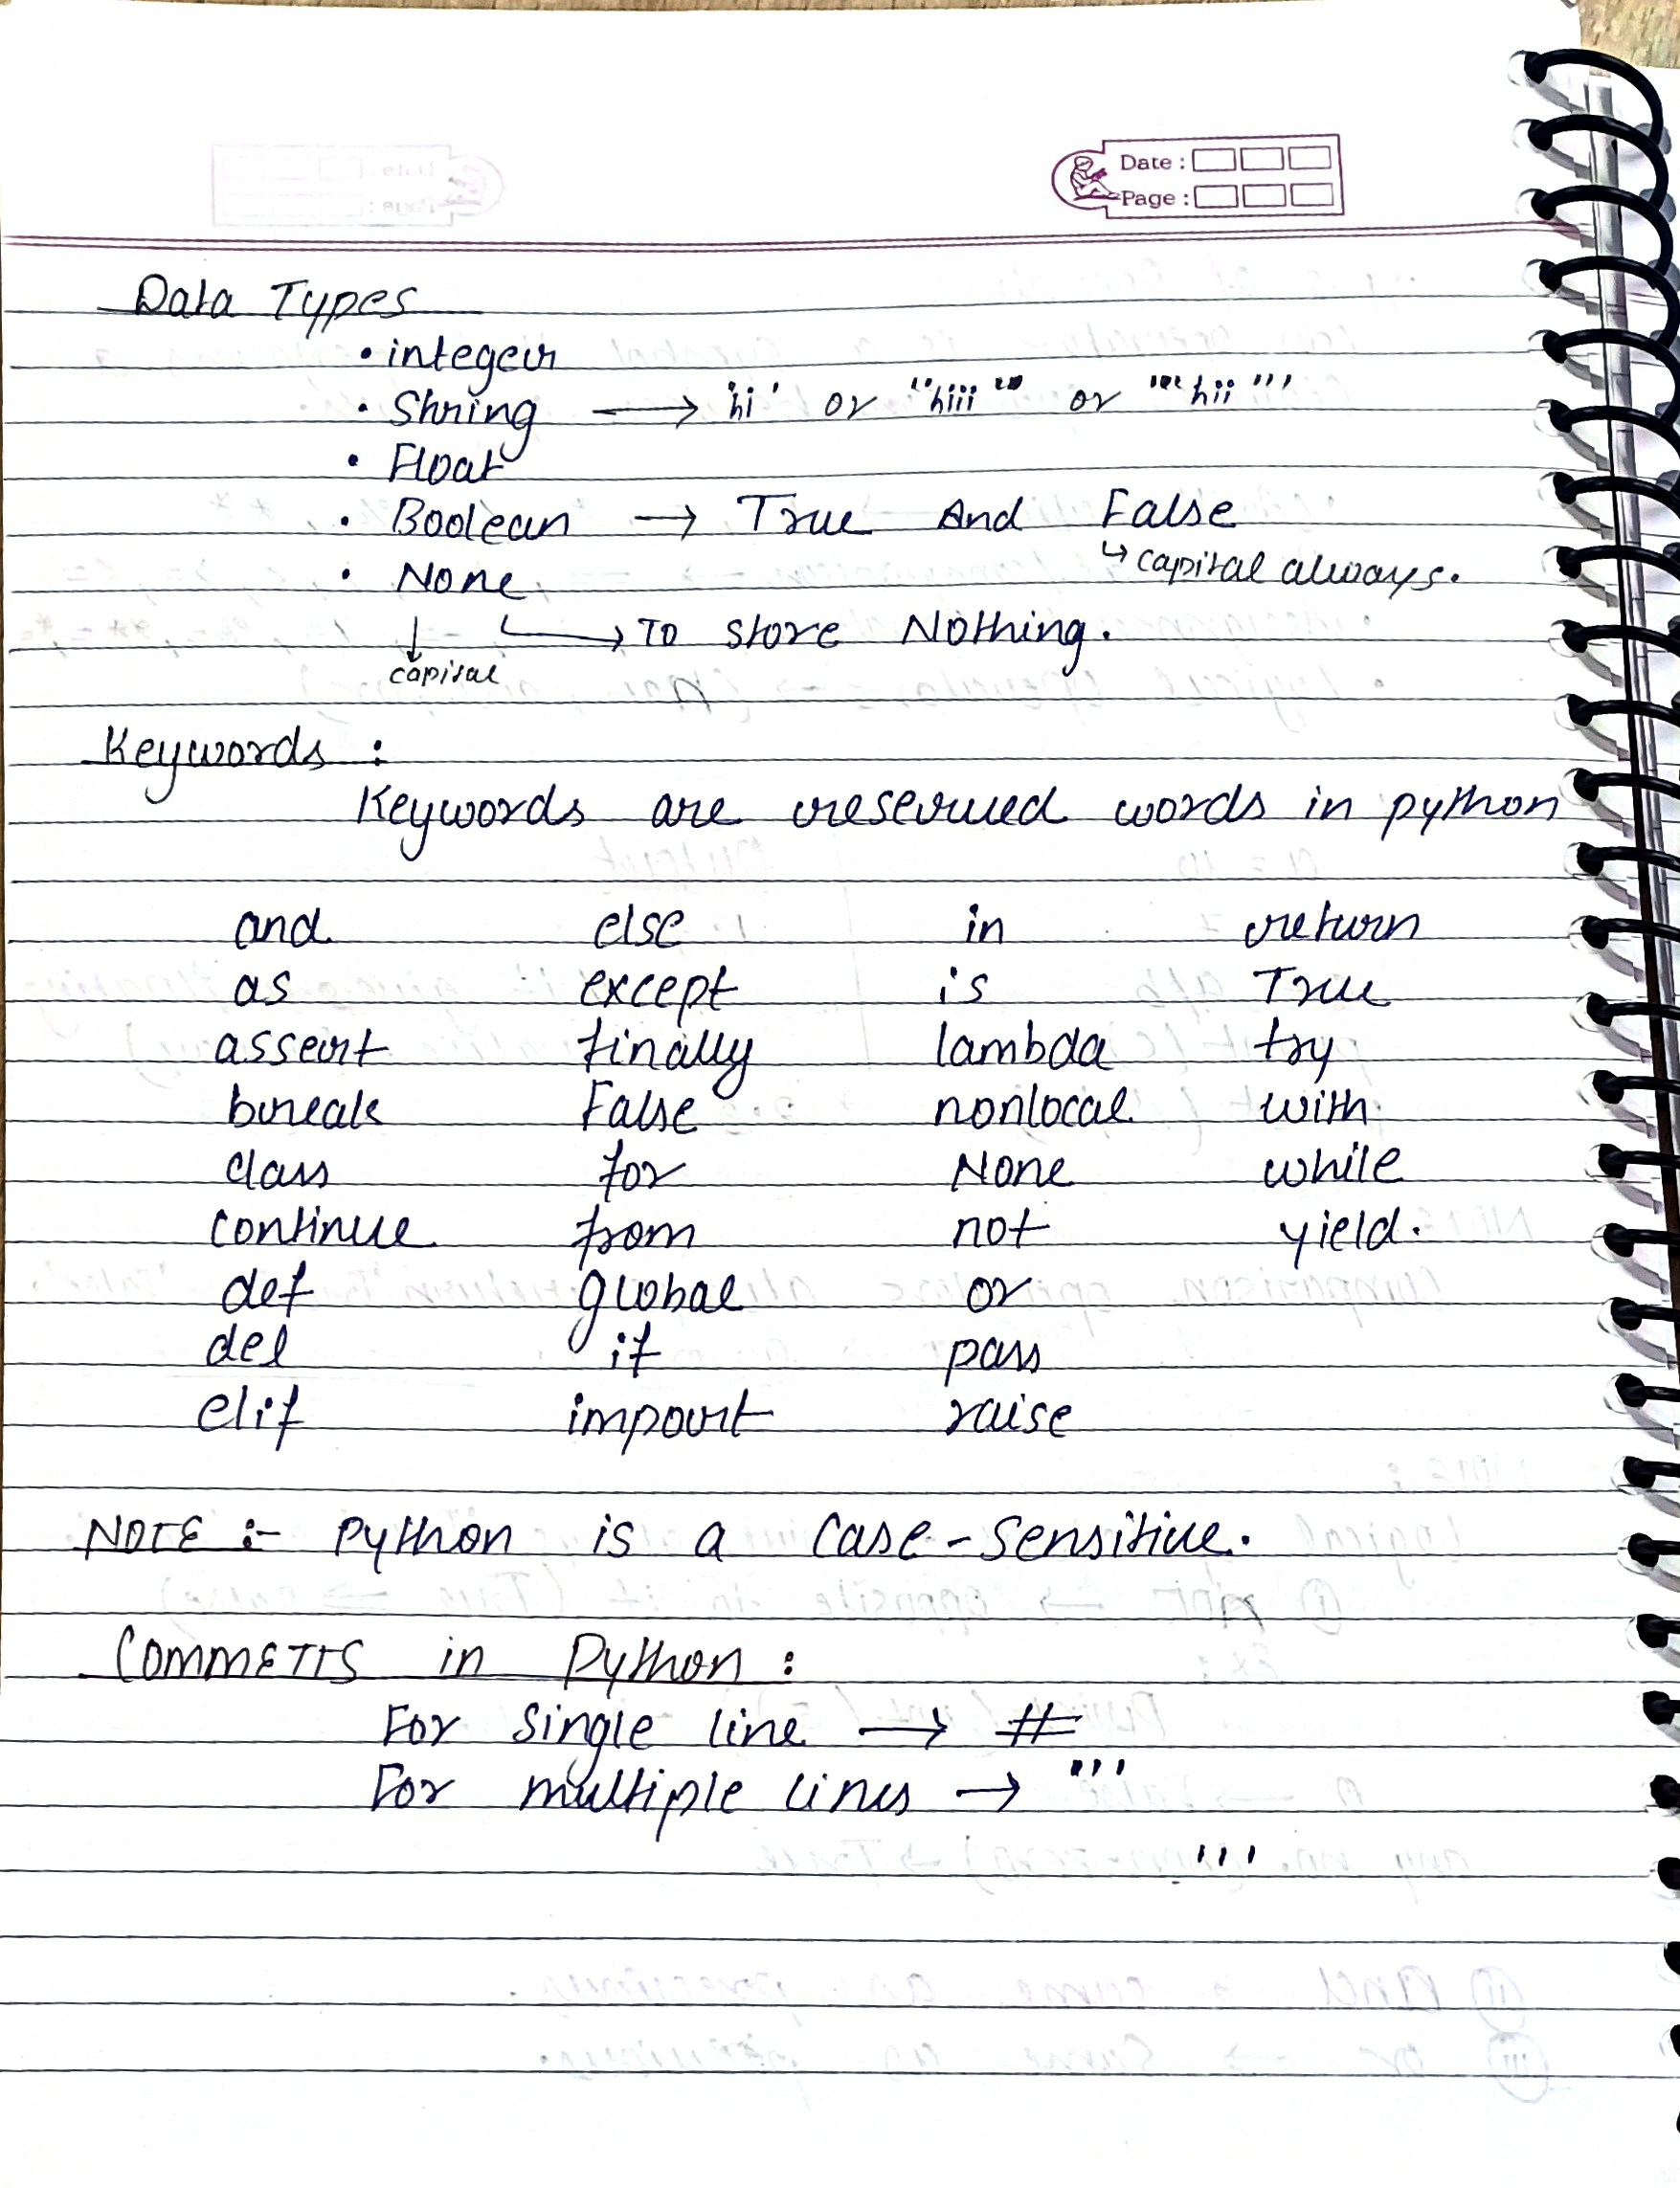 Date :
Page :
Data Types
• integer
• String → 'hi' or "hiii" or '''hii'''
• Float
• Boolean → True And False
↳ capital always.
• None
↳ To store Nothing.
↓
capital
Keywords :
Keywords are reserved words in python
and else in return
as except is True
assert finally lambda try
break False nonlocal with
class for None while
continue from not yield.
def global or
del if pass
elif import raise
NOTE :- Python is a case-sensitive.
Commetts in Python :
For single line → #
For multiple lines → '''
'''